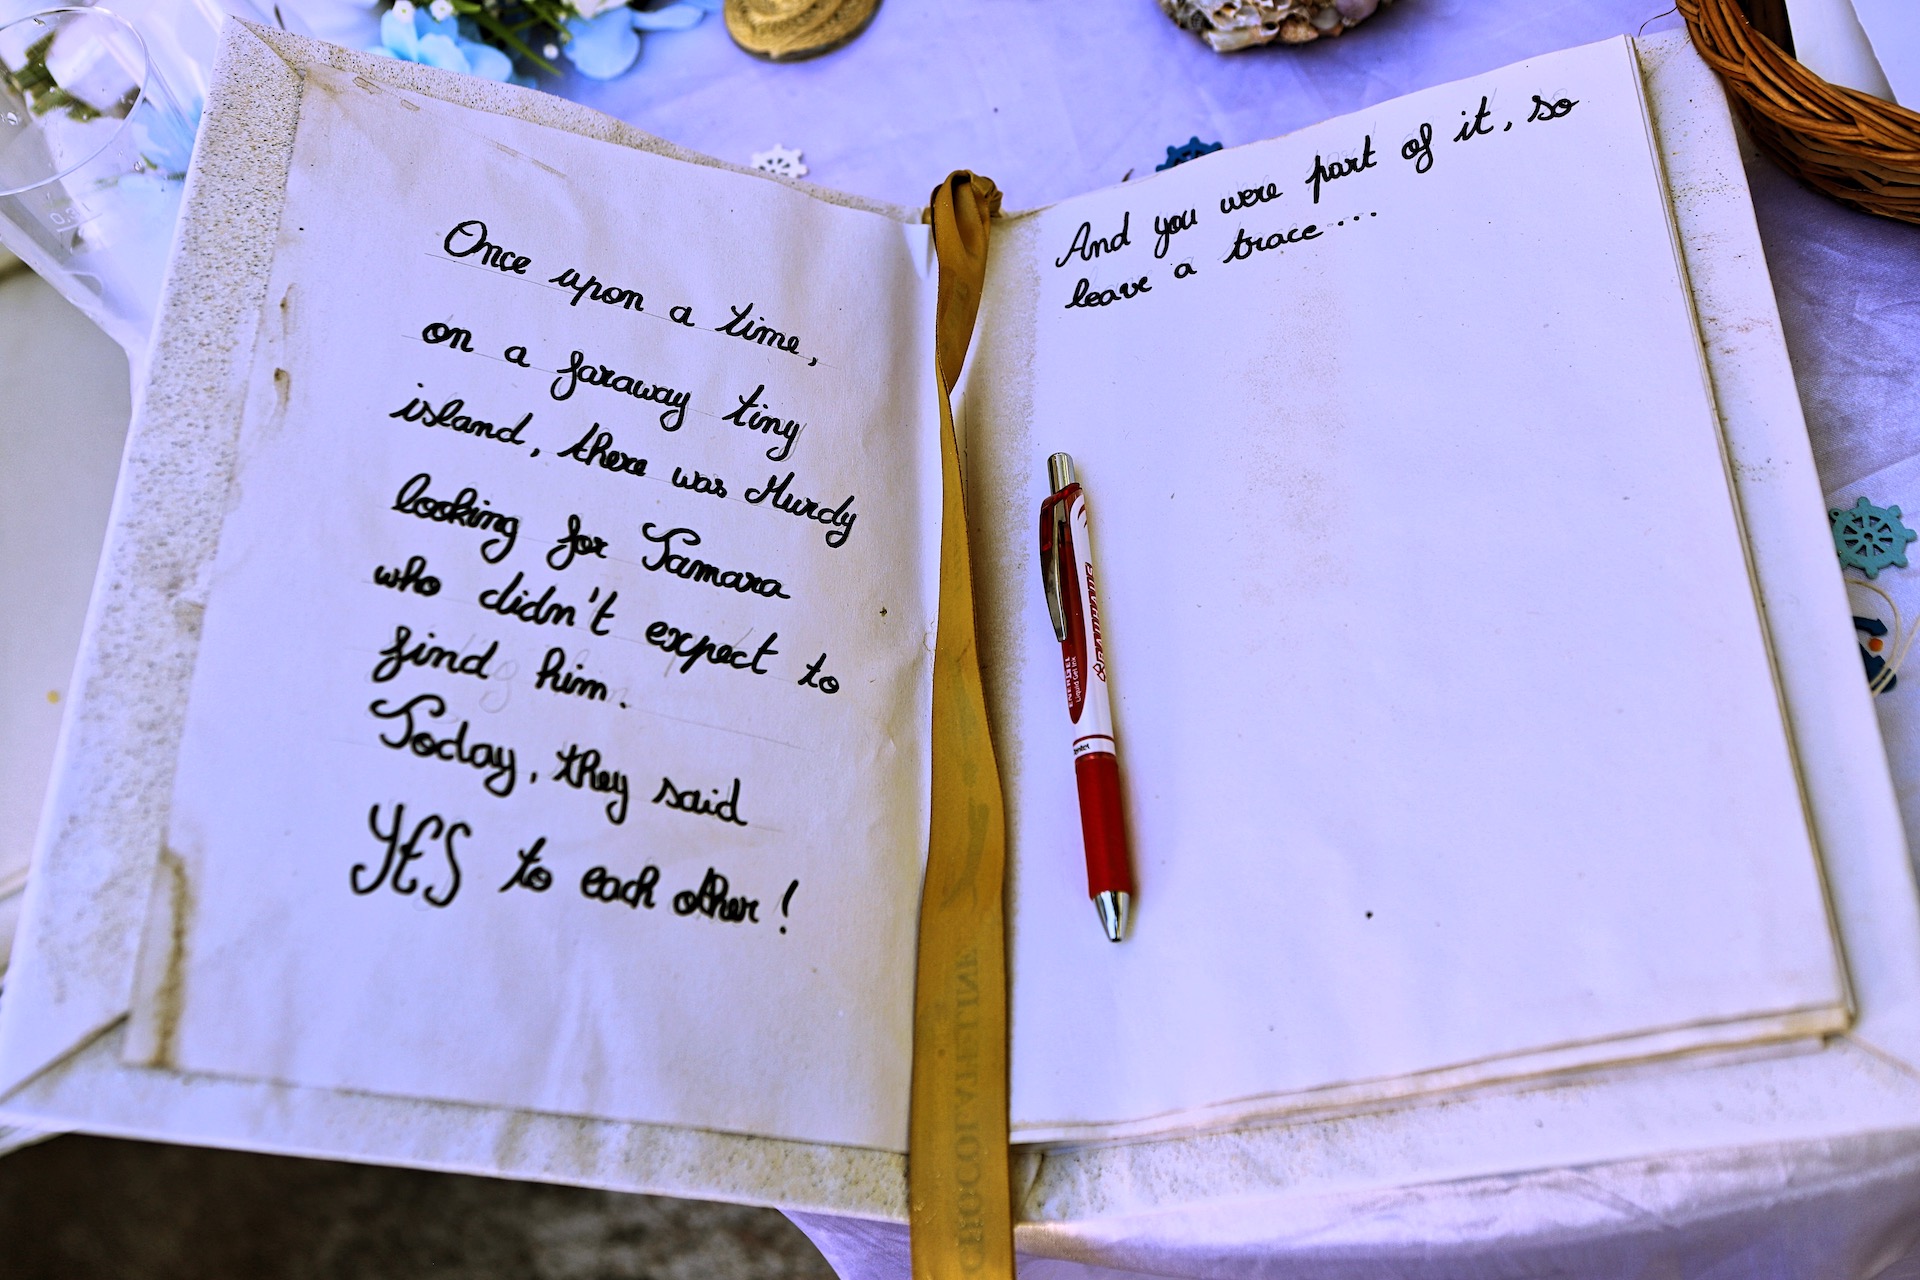 Once upon a time,
on a faraway tiny
island, there was Murdy
looking for Tamara
who didn't expect to
find him.
Today, they said
YES to each other!
And you were part of it, so
leave a trace...
ENERGEL
Liquid Gel Ink
Pentel
CHOCOLATELINE